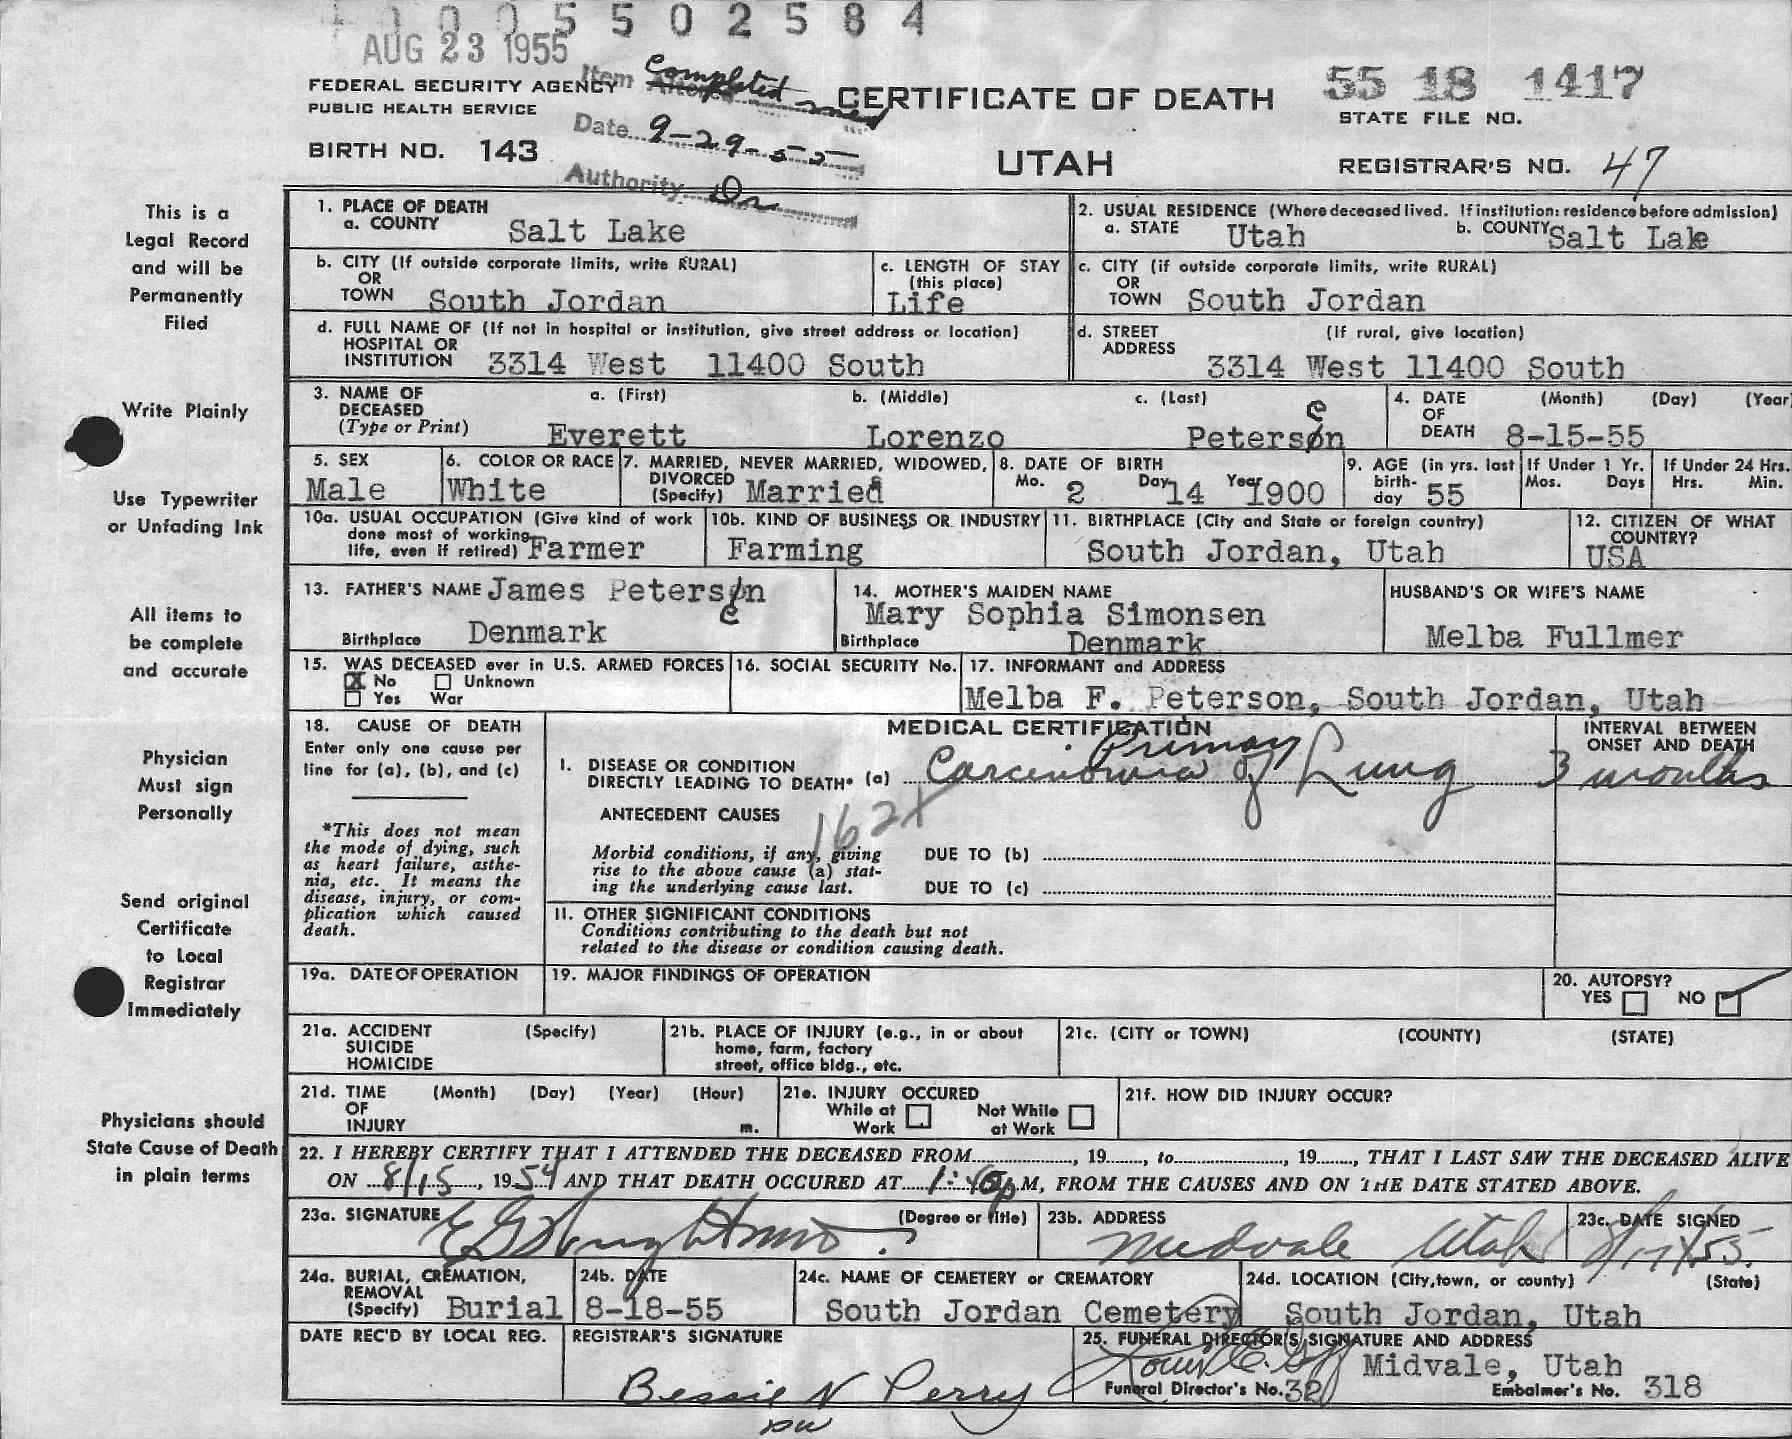 0005502584
AUG 23 1955
Item Completed
FEDERAL SECURITY AGENCY
PUBLIC HEALTH SERVICE
CERTIFICATE OF DEATH
55 18 1417
STATE FILE NO.
Date 9-29-55
BIRTH NO. 143
UTAH
REGISTRAR'S NO. 47
Authority Dr
This is a
Legal Record
and will be
Permanently
Filed
Write Plainly
Use Typewriter
or Unfading Ink
All items to
be complete
and accurate
Physician
Must sign
Personally
Send original
Certificate
to Local
Registrar
Immediately
Physicians should
State Cause of Death
in plain terms
1. PLACE OF DEATH
a. COUNTY Salt Lake
2. USUAL RESIDENCE (Where deceased lived. If institution: residence before admission)
a. STATE Utah b. COUNTY Salt Lake
b. CITY (If outside corporate limits, write RURAL)
OR
TOWN South Jordan
c. LENGTH OF STAY
(this place)
Life
c. CITY (if outside corporate limits, write RURAL)
OR
TOWN South Jordan
d. FULL NAME OF (If not in hospital or institution, give street address or location)
HOSPITAL OR
INSTITUTION 3314 West 11400 South
d. STREET (If rural, give location)
ADDRESS
3314 West 11400 South
3. NAME OF a. (First) b. (Middle) c. (Last)
DECEASED
(Type or Print) Everett Lorenzo Petersen
4. DATE (Month) (Day) (Year)
OF
DEATH 8-15-55
5. SEX
Male
6. COLOR OR RACE
White
7. MARRIED, NEVER MARRIED, WIDOWED,
DIVORCED
(Specify) Married
8. DATE OF BIRTH
Mo. 2 Day 14 Year 1900
9. AGE (in yrs. last
birth-
day 55
If Under 1 Yr.
Mos. Days
If Under 24 Hrs.
Hrs. Min.
10a. USUAL OCCUPATION (Give kind of work
done most of working
life, even if retired) Farmer
10b. KIND OF BUSINESS OR INDUSTRY
Farming
11. BIRTHPLACE (City and State or foreign country)
South Jordan, Utah
12. CITIZEN OF WHAT
COUNTRY?
USA
13. FATHER'S NAME James Petersen
Birthplace Denmark
14. MOTHER'S MAIDEN NAME
Mary Sophia Simonsen
Birthplace Denmark
HUSBAND'S OR WIFE'S NAME
Melba Fullmer
15. WAS DECEASED ever in U.S. ARMED FORCES
X No Unknown
Yes War
16. SOCIAL SECURITY No.
17. INFORMANT and ADDRESS
Melba F. Peterson, South Jordan, Utah
18. CAUSE OF DEATH
Enter only one cause per
line for (a), (b), and (c)
*This does not mean
the mode of dying, such
as heart failure, asthe-
nia, etc. It means the
disease, injury, or com-
plication which caused
death.
MEDICAL CERTIFICATION
Primary
I. DISEASE OR CONDITION
DIRECTLY LEADING TO DEATH* (a) Carcinoma of Lung
INTERVAL BETWEEN
ONSET AND DEATH
3 months
ANTECEDENT CAUSES
162x
Morbid conditions, if any, giving
rise to the above cause (a) stat-
ing the underlying cause last.
DUE TO (b)
DUE TO (c)
II. OTHER SIGNIFICANT CONDITIONS
Conditions contributing to the death but not
related to the disease or condition causing death.
19a. DATE OF OPERATION
19. MAJOR FINDINGS OF OPERATION
20. AUTOPSY?
YES NO
21a. ACCIDENT (Specify)
SUICIDE
HOMICIDE
21b. PLACE OF INJURY (e.g., in or about
home, farm, factory
street, office bldg., etc.
21c. (CITY or TOWN) (COUNTY) (STATE)
21d. TIME (Month) (Day) (Year) (Hour)
OF
INJURY m.
21e. INJURY OCCURED
While at Work
Not While at Work
21f. HOW DID INJURY OCCUR?
22. I HEREBY CERTIFY THAT I ATTENDED THE DECEASED FROM, 19, to, 19, THAT I LAST SAW THE DECEASED ALIVE
ON 8/15, 1954 AND THAT DEATH OCCURED AT 1:40p M, FROM THE CAUSES AND ON THE DATE STATED ABOVE.
23a. SIGNATURE (Degree or title)
23b. ADDRESS
Midvale Utah
23c. DATE SIGNED
8/17/55
24a. BURIAL, CREMATION,
REMOVAL
(Specify) Burial
24b. DATE
8-18-55
24c. NAME OF CEMETERY or CREMATORY
South Jordan Cemetery
24d. LOCATION (City, town, or county) (State)
South Jordan, Utah
DATE REC'D BY LOCAL REG.
REGISTRAR'S SIGNATURE
Bessie N Perry
25. FUNERAL DIRECTOR'S SIGNATURE AND ADDRESS
Midvale, Utah
Funeral Director's No. 320 Embalmer's No. 318